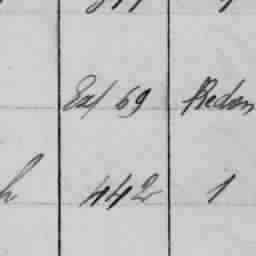 Ex/69 Redon
h 442 1